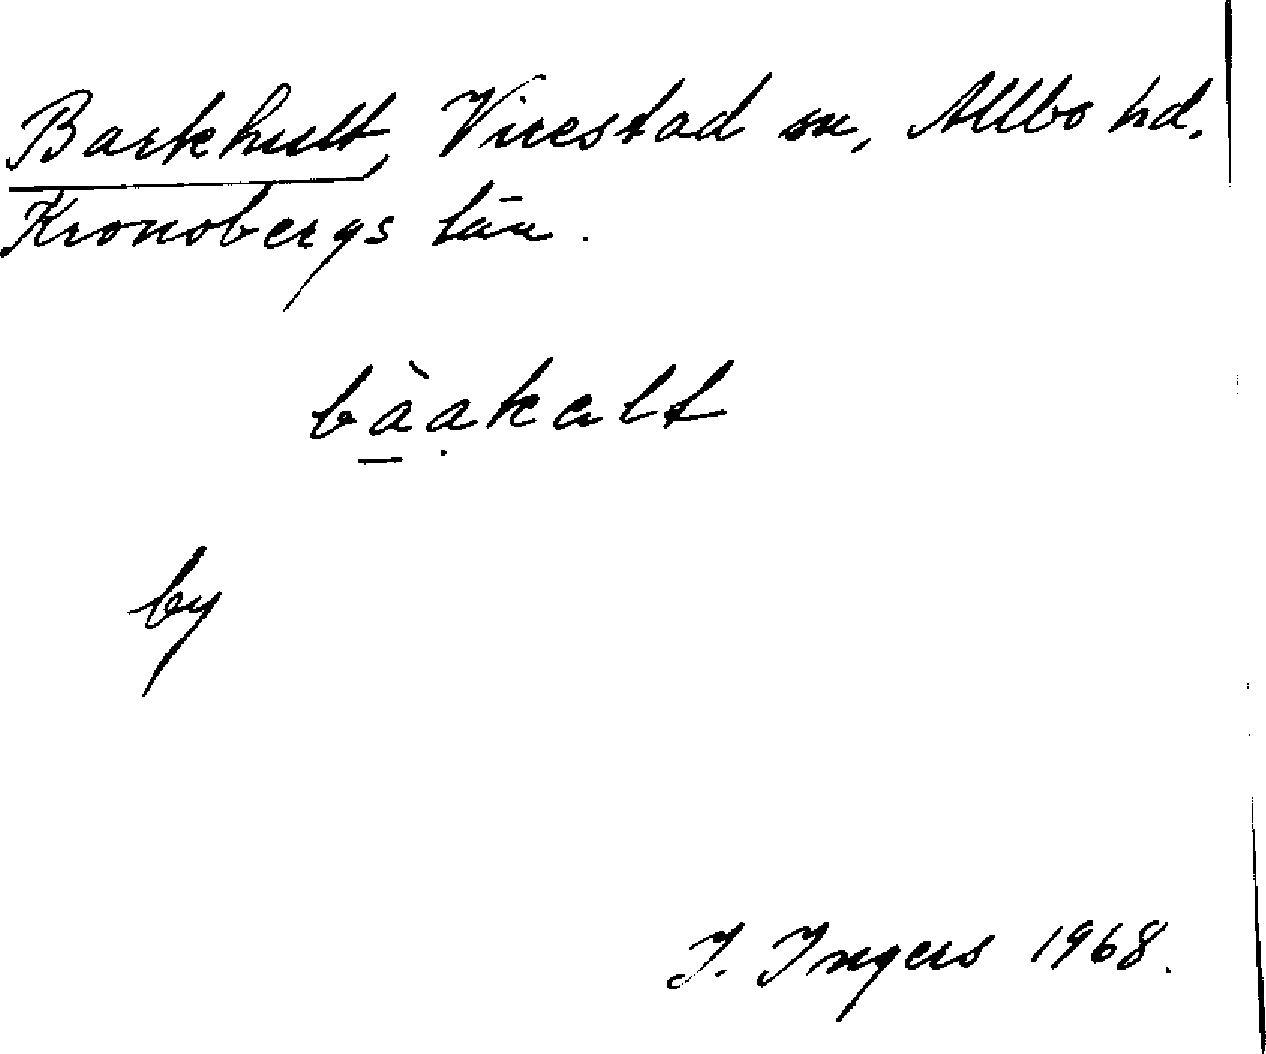 Barkhult, Virestad sn, Allbo hd.
Kronobergs län.
bà̱ạkalt
by
I. Ingers 1968.